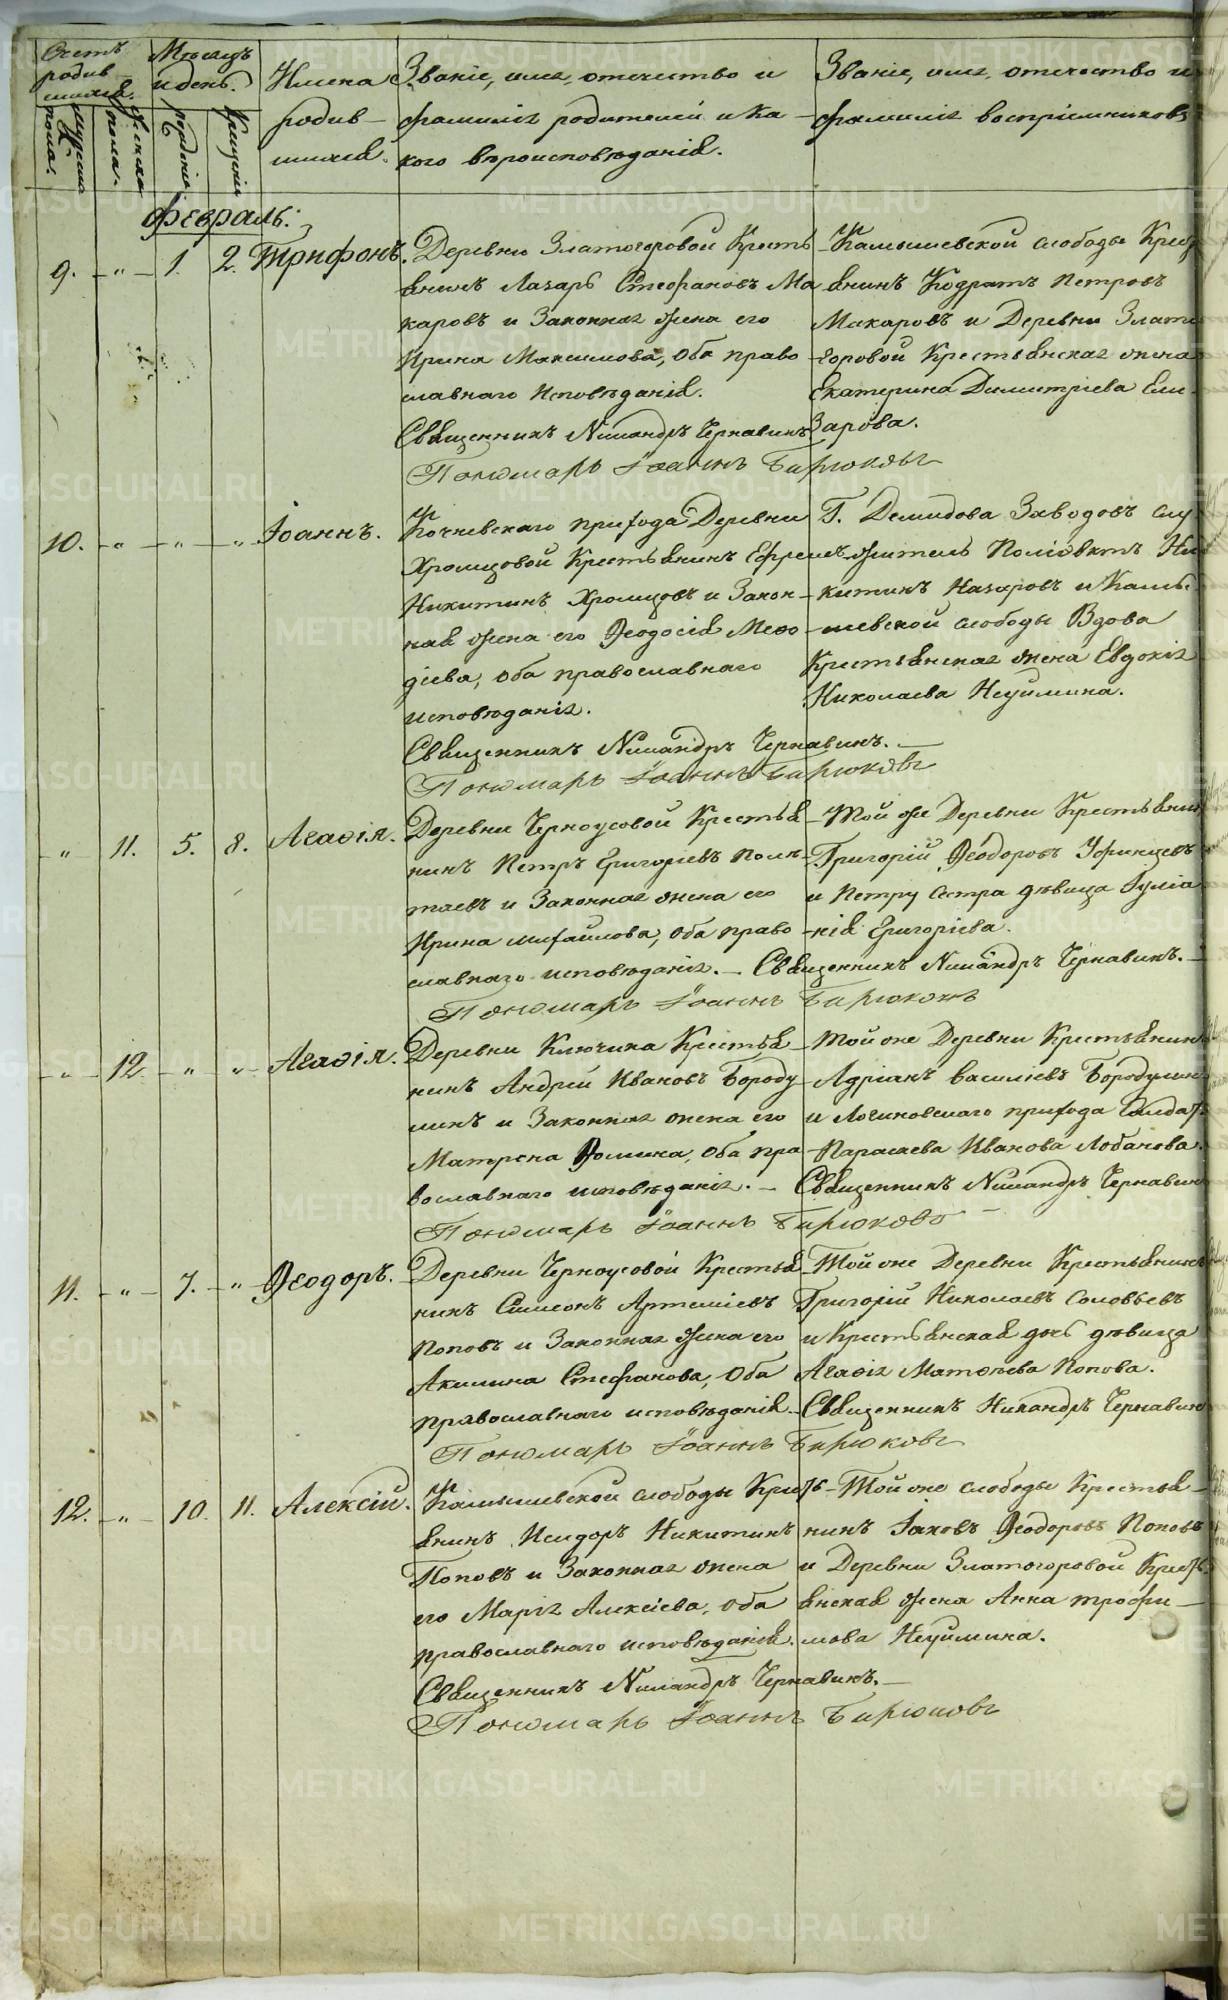 Счетъ родив-шихся.
Мужеска пола.
Женска пола.
Мѣсяцъ и день.
рожденія
Крещенія
Имена родив-шихся.
Званіе, имя, отечество и фамилія родителей и ка-кого вѣроисповѣданія.
Званіе, имя, отечество и фамилія воспріемниковъ
Февраль:
9. - " - 1. 2. Трифонъ.
Деревни Златогоровой Кресть
янинъ Лазарь Стефановъ Ма
каровъ и Законная жена его
Ирина Максимова, оба право
славнаго Исповѣданія.
Священникъ Никандръ Чернавинъ
Пономарь Іоаннъ Бирюковъ
Камышевской слободы Крест
янинъ Кодратъ Петровъ
Макаровъ и Деревни Злато
горовой Крестьянская жена
Екатерина Димитріева Ели-
зарова.
10. - " - " - " Іоаннъ.
Кочневскаго прихода Деревни
Хромцовой Крестьянинъ Ефремъ
Никитинъ Хромцовъ и Закон-
ная жена его Ѳеодосія Меѳо
діева, оба православнаго
исповѣданія.
Священникъ Никандръ Чернавинъ. -
Пономарь Іоаннъ Бирюковъ
Г. Демидова Заводовъ слу
житель Ни
китинъ Назаровъ и Камы-
шевской слободы Вдова
Крестьянская жена Евдокія
Николаева Неуймина.
- " - 11. 5. 8. Агаѳія.
Деревни Черноусовой Крестья
нинъ Петръ Григорьевъ
и Законная жена его
Ирина Михайлова, оба право
славнаго исповѣданія. - Священникъ Никандръ Чернавинъ. -
Пономарь Іоаннъ Бирюковъ
Той же Деревни Крестьянинъ
Григорій Ѳеодоровъ Уфинцевъ
и Петру сестра дѣвица Іуліа
нія Григоріева.
- " - 12. - " - " - Агаѳія.
Деревни Ключика Крестья
нинъ Андрей Ивановъ Бороду
линъ и Законная жена его
Матрена Ѳомина, оба пра
вославнаго исповѣданія. - Священникъ Никандръ Чернавин
Пономарь Іоаннъ Бирюковъ
Той же Деревни Крестьянинъ
Адріанъ Василіевъ Бородулинъ
и Логиновскаго прихода Солдат.
Параскева Иванова Лобанова.
11. - " - 7. - " - Ѳеодоръ.
Деревни Черноусовой Крестья
нинъ Симеонъ Артеміевъ
Поповъ и Законная жена его
Акилина Стефанова, оба
православнаго исповѣданія. - Священникъ Никандръ Чернавин
Пономарь Іоаннъ Бирюковъ
Той же Деревни Крестьянинъ
Григорій Николаевъ Соловьевъ
и Крестьянская дочь дѣвица
Агаѳія Матѳѣева Попова.
12. - " - 10. 11. Алексій.
Камышевской слободы Крест
янинъ Исидоръ Никитинъ
Поповъ и Законная жена
его Марія Алексіева, оба
православнаго исповѣданія.
Священникъ Никандръ Чернавинъ. -
Пономарь Іоаннъ Бирюковъ
Той же слободы Крестья
нинъ Іаковъ Ѳеодоровъ Поповъ
и Деревни Златогоровой Крест
янская жена Анна Трофи-
мова Неуймина.
METRIKI.GASO-URAL.RU